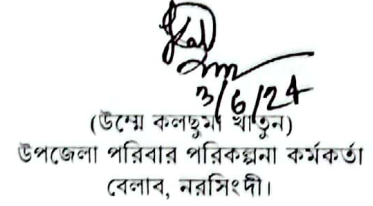 3/6/24
(উম্মে কলছুমা খাতুন)
উপজেলা পরিবার পরিকল্পনা কর্মকর্তা
বেলাব, নরসিংদী।